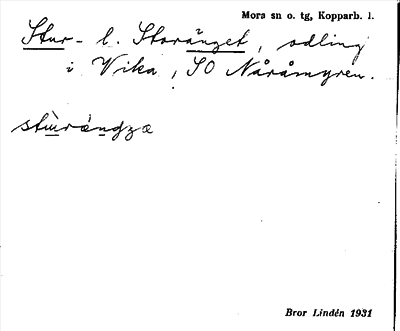 Mora sn o. tg, Kopparb. l.
Stur- l. Storänget, odling
i Vika, SO Nåråmyren.
stùrà̀ngzæ
Bror Lindén 1931